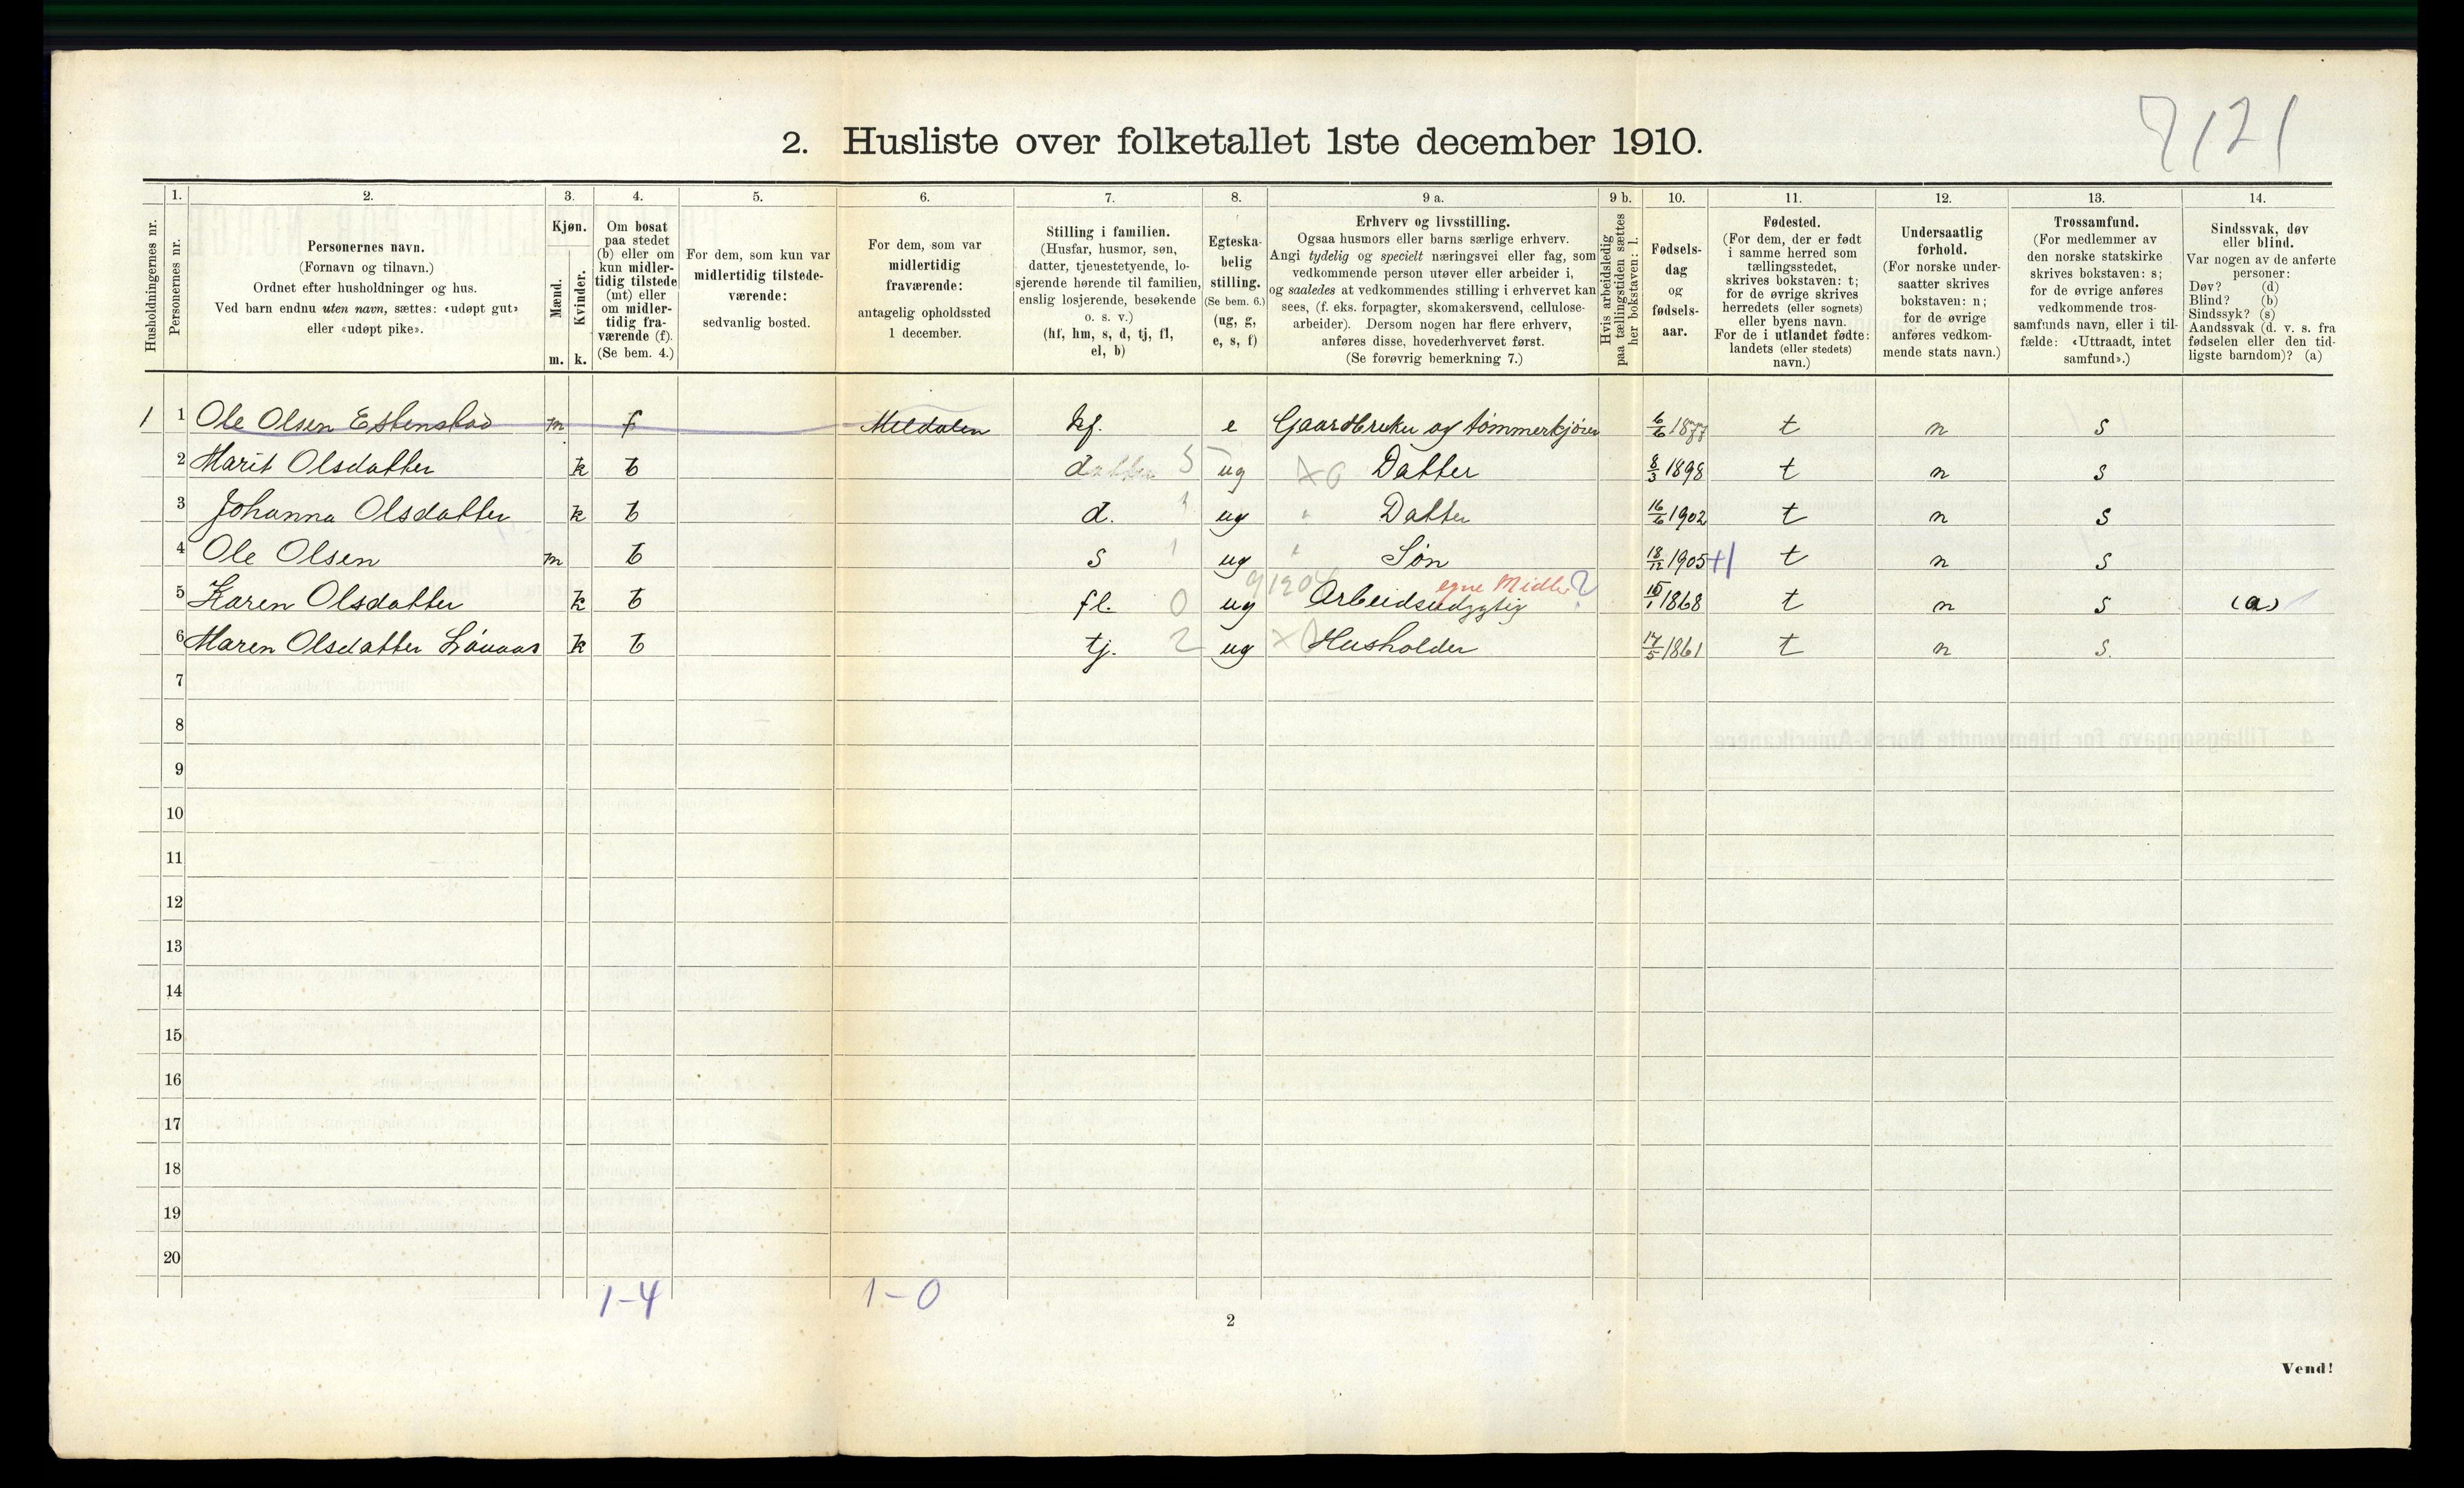 7121
2. Husliste over folketallet 1ste december 1910.
Husholdningernes nr.
1.
Personernes nr.
2.
Personernes navn.
(Fornavn og tilnavn.)
Ordnet efter husholdninger og hus.
Ved barn endnu uten navn, sættes: «udøpt gut»
eller «udøpt pike».
3.
Kjøn.
Mænd.
Kvinder.
m. k.
4.
Om bosat
paa stedet
(b) eller om
kun midler-
tidig tilstede
(mt) eller
om midler-
tidig fra-
værende (f).
(Se bem. 4.)
5.
For dem, som kun var
midlertidig tilstede-
værende:
sedvanlig bosted.
6.
For dem, som var
midlertidig
fraværende:
antagelig opholdssted
1 december.
7.
Stilling i familien.
(Husfar, husmor, søn,
datter, tjenestetyende, lo-
sjerende hørende til familien,
enslig losjerende, besøkende
o. s. v.)
(hf, hm, s, d, tj, fl,
el, b)
8.
Egteska-
belig
stilling.
(Se bem. 6.)
(ug, g,
e, s, f)
9 a.
Erhverv og livsstilling.
Ogsaa husmors eller barns særlige erhverv.
Angi tydelig og specielt næringsvei eller fag, som
vedkommende person utøver eller arbeider i,
og saaledes at vedkommendes stilling i erhvervet kan
sees, (f. eks. forpagter, skomakersvend, cellulose-
arbeider). Dersom nogen har flere erhverv,
anføres disse, hovederhvervet først.
(Se forøvrig bemerkning 7.)
9 b.
Hvis arbeidsledig
paa tællingstiden sættes
her bokstaven: l.
10.
Fødsels-
dag
og
fødsels-
aar.
11.
Fødested.
(For dem, der er født
i samme herred som
tællingsstedet,
skrives bokstaven: t;
for de øvrige skrives
herredets (eller sognets)
eller byens navn.
For de i utlandet fødte:
landets (eller stedets)
navn.)
12.
Undersaatlig
forhold.
(For norske under-
saatter skrives
bokstaven: n;
for de øvrige
anføres vedkom-
mende stats navn.)
13.
Trossamfund.
(For medlemmer av
den norske statskirke
skrives bokstaven: s;
for de øvrige anføres
vedkommende tros-
samfunds navn, eller i til-
fælde: «Uttraadt, intet
samfund».)
14.
Sindssvak, døv
eller blind.
Var nogen av de anførte
personer:
Døv? (d)
Blind? (b)
Sindssyk? (s)
Aandssvak (d. v. s. fra
fødselen eller den tid-
ligste barndom)? (a)
1 1 Ole Olsen Estenstad m f Meldalen hf. e Gaardbruker og tømmerkjører 6/6 1877 t n s
2 Marit Olsdatter k b datter 5 ug Datter 8/3 1898 t n s
3 Johanna Olsdatter k b d. 1 ug Datter 16/6 1902 t n s
4 Ole Olsen m b s 1 ug Søn 18/12 1905 +1 t n s
5 Karen Olsdatter k b fl. 0 ug Arbeidsudygtig egne Midler ? 15/1 1868 t n s (a)
6 Maren Olsdatter Løvaas k b tj. 2 ug Husholder 17/5 1861 t n s.
7
8
9
10
11
12
13
14
15
16
17
18
19
20
1-4 1-0
2
Vend!